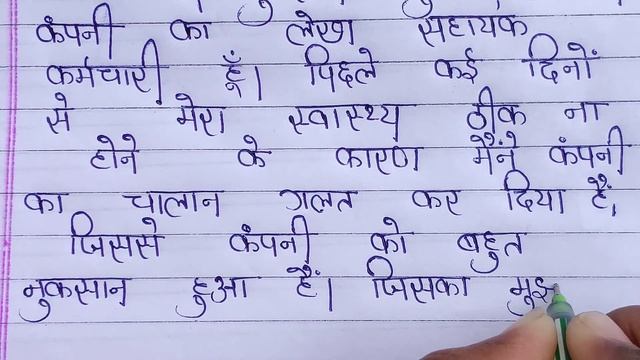 कंपनी का लेखा सहायक
कर्मचारी हूँ। पिछले कई दिनों
से मेरा स्वास्थ्य ठीक ना
होने के कारण मैंने कंपनी
का चालान गलत कर दिया हैं,
जिससे कंपनी को बहुत
नुकसान हुआ हैं। जिसका मुझ